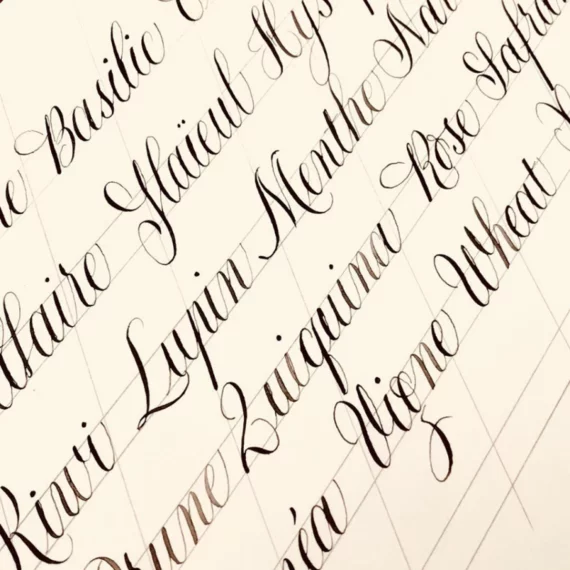 Basilic
Glaïeul Hys
Kiwi Lupin Menthe Nar
Prune Quiquina Rose Safra
éa Vigne Wheat